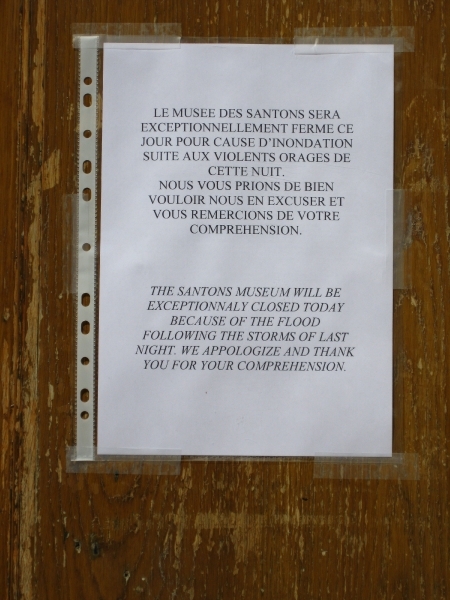 LE MUSEE DES SANTONS SERA
EXCEPTIONNELLEMENT FERME CE
JOUR POUR CAUSE D'INONDATION
SUITE AUX VIOLENTS ORAGES DE
CETTE NUIT.
NOUS VOUS PRIONS DE BIEN
VOULOIR NOUS EN EXCUSER ET
VOUS REMERCIONS DE VOTRE
COMPREHENSION.
THE SANTONS MUSEUM WILL BE
EXCEPTIONNALY CLOSED TODAY
BECAUSE OF THE FLOOD
FOLLOWING THE STORMS OF LAST
NIGHT. WE APPOLOGIZE AND THANK
YOU FOR YOUR COMPREHENSION.